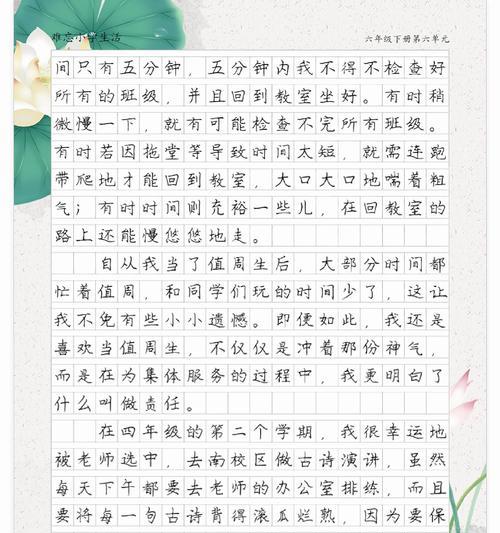 难忘小学生活
六年级下册第六单元
间只有五分钟，五分钟内我不得不检查好
所有的班级，并且回到教室坐好。有时稍
微慢一下，就有可能检查不完所有班级。
有时若因拖堂等导致时间太短，就需连跑
带爬地才能回到教室，大口大口地喘着粗
气；有时时间则充裕一些儿，在回教室的
路上还能慢悠悠地走。
自从我当了值周生后，大部分时间都
忙着值周，和同学们玩的时间少了，这让
我不免有些小小遗憾。即便如此，我还是
喜欢当值周生，不仅仅是冲着那份神气，
而是在为集体服务的过程中，我更明白了
什么叫做责任。
在四年级的第二个学期，我很幸运地
被老师选中，去南校区做古诗演讲，虽然
每天下午都要去老师的办公室排练，而且
要将每一句古诗背得滚瓜烂熟，因为要保